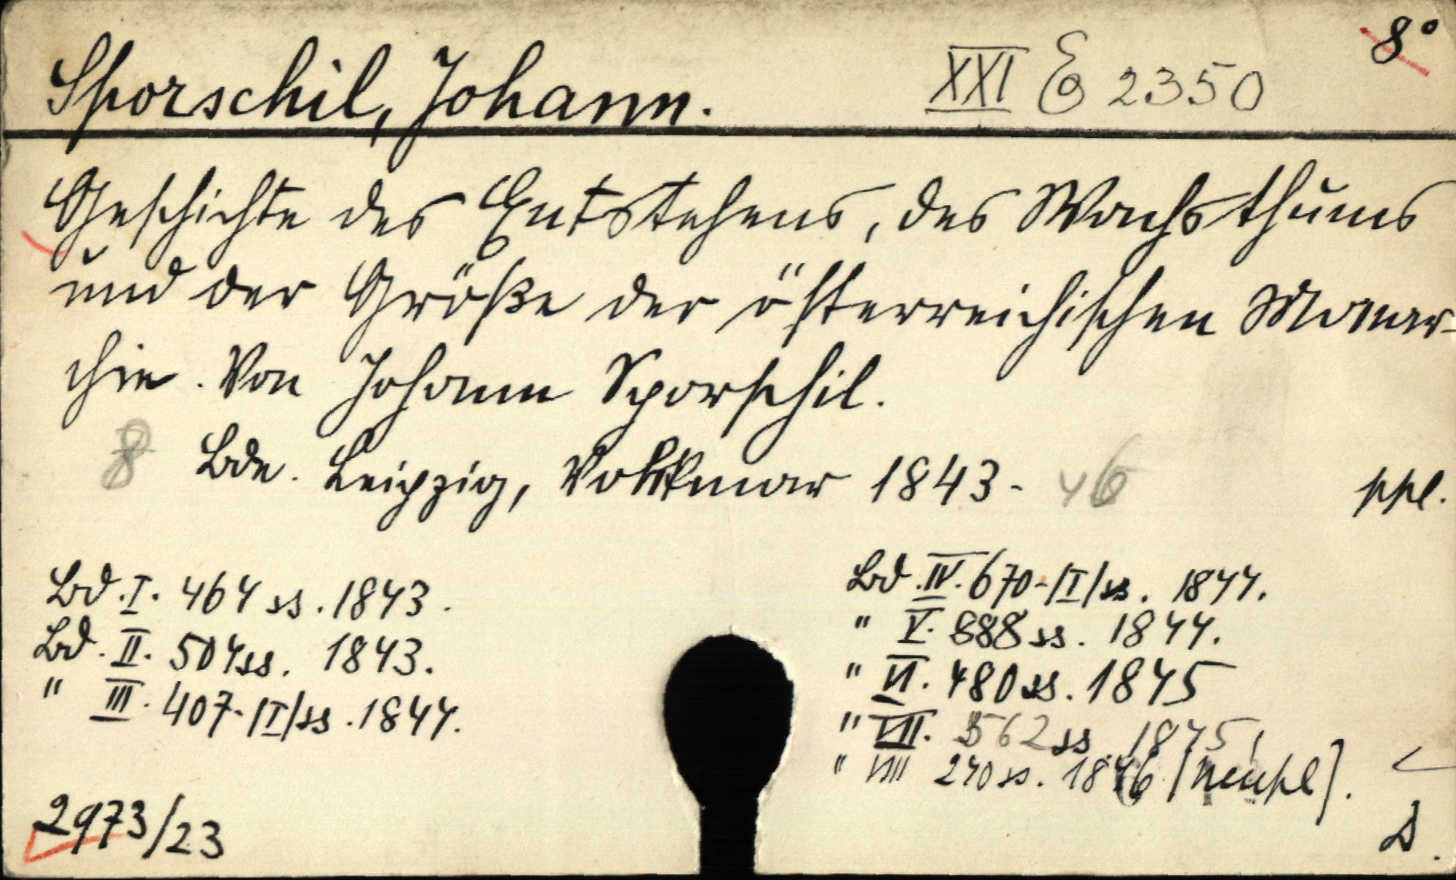 8°
Sporschil, Johann. XXI E 2350
Geschichte des Entstehens, des Wachsthums
und der Größe der österreichischen Monar-
chie. Von Johann Sporschil.
8 Bde. Leipzig, Volkmar 1843-46 ppl.
Bd. I. 464 ss. 1843.
Bd. II. 504 ss. 1843.
" III. 407-|I|ss. 1844.
Bd. IV. 670-|I|ss. 1844.
" V. 888 ss. 1844.
" VI. 480 ss. 1845
" VII. 562 ss 1845,
" VIII 240 ss. 1846 [ ].
2973/23